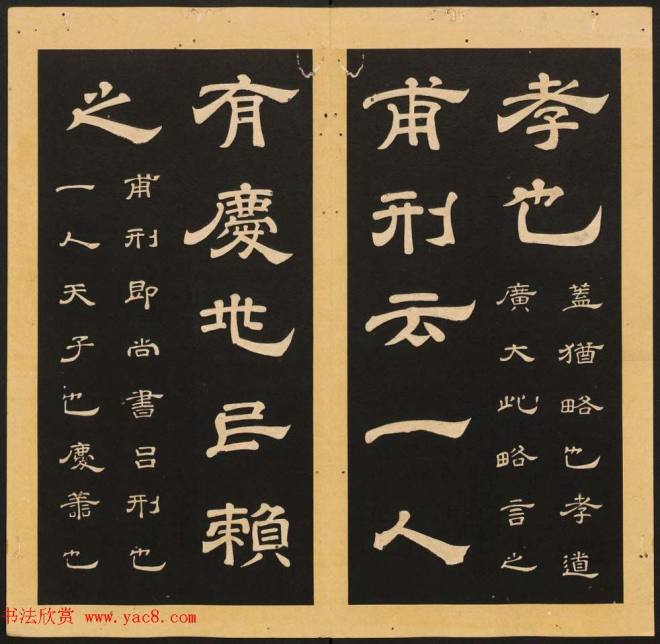 孝也
蓋猶略也孝道
廣大此略言之
甫刑云一人
有慶兆民賴
之
甫刑即尚書呂刑也
一人天子也慶善也
书法欣赏 www.yac8.com